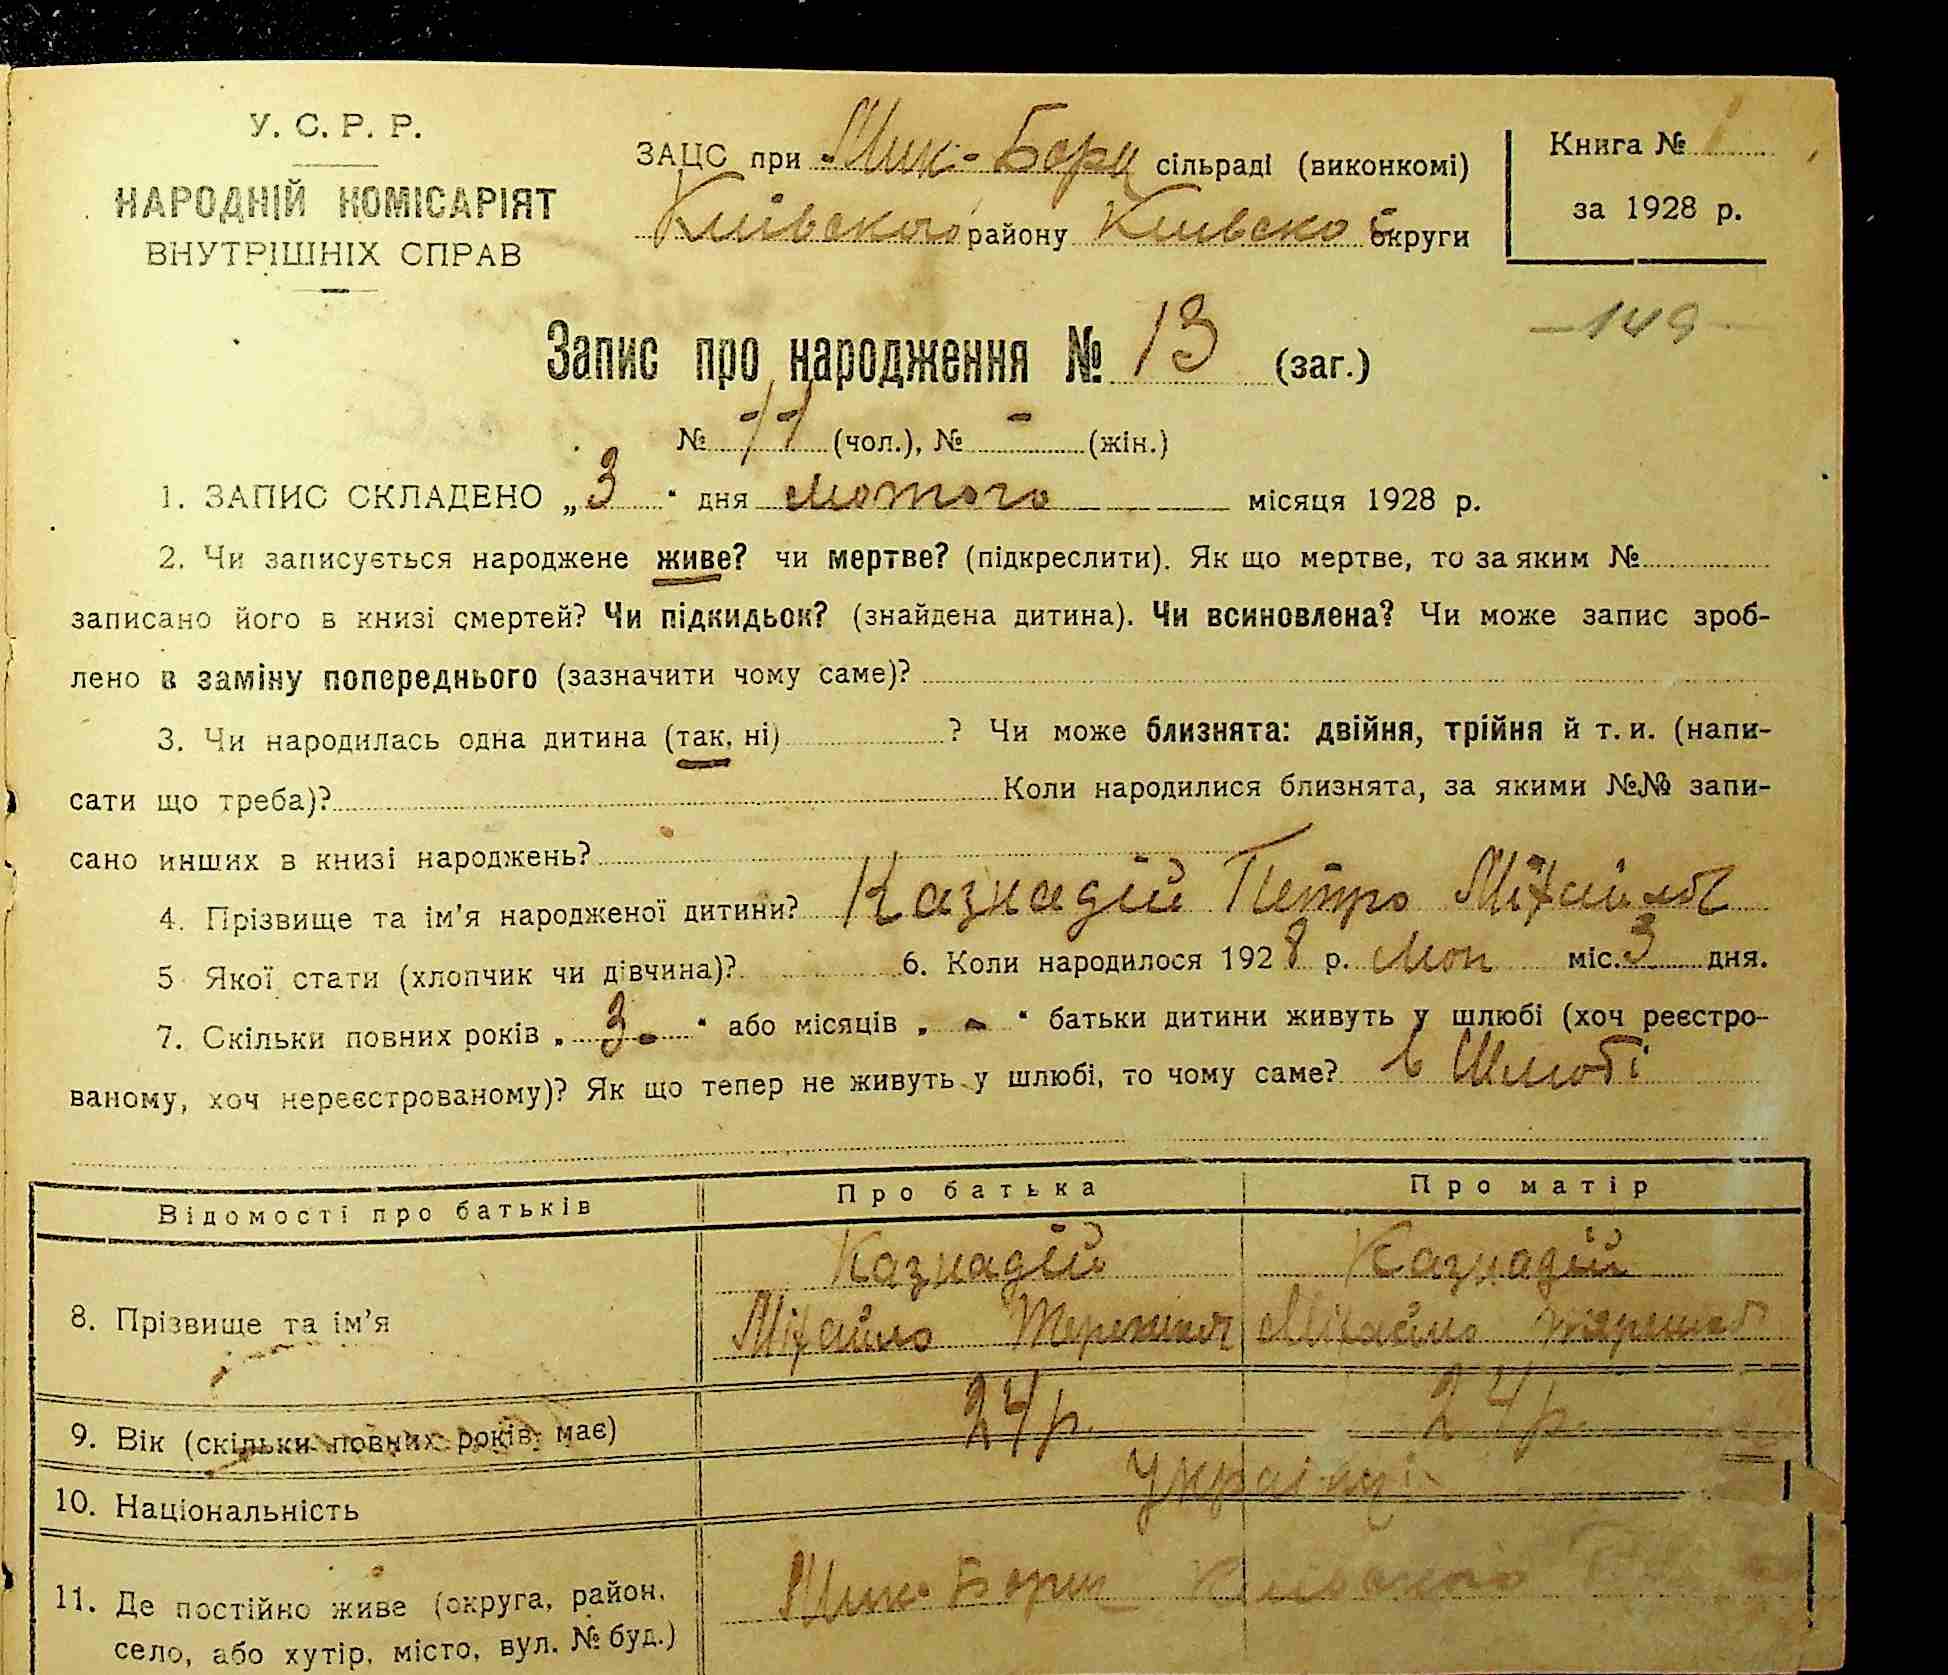 У. С. Р. Р.
НАРОДНІЙ КОМІСАРІЯТ
ВНУТРІШНІХ СПРАВ
ЗАЦС при Мик-Борщ сільраді (виконкомі)
Київского району Киівскоі округи
Книга № 1
за 1928 р.
149
Запис про народження № 13 (заг.)
№ 11 (чол.), № - (жін.)
1. ЗАПИС СКЛАДЕНО „3" дня лютого місяця 1928 р.
2. Чи записується народжене живе? чи мертве? (підкреслити). Як що мертве, то за яким №
записано його в книзі смертей? Чи підкидьок? (знайдена дитина). Чи всиновлена? Чи може запис зроб-
лено в заміну попереднього (зазначити чому саме)?
3. Чи народилась одна дитина (так, ні) ? Чи може близнята: двійня, трійня й т. и. (напи-
сати що треба)? Коли народилися близнята, за якими №№ запи-
сано инших в книзі народжень?
4. Прізвище та ім'я народженої дитини? Казнадій Петро Міхайлов
5 Якої стати (хлопчик чи дівчина)? 6. Коли народилося 1928 р. Лют міс. 3 дня.
7. Скільки повних років „ 3 - " або місяців „ - " батьки дитини живуть у шлюбі (хоч реєстро-
ваному, хоч нереєстрованому)? Як що тепер не живуть у шлюбі, то чому саме? в Шлюбі
Відомості про батьків Про батька Про матір
Казнадій Казнадій
8. Прізвище та ім'я Міхайло Міхайло
9. Вік (скільки повних років має) 24 р. 24 р.
10. Національність Украінці
11. Де постійно живе (округа, район, Мик-Борщ Київского
село, або хутір, місто, вул. № буд.)